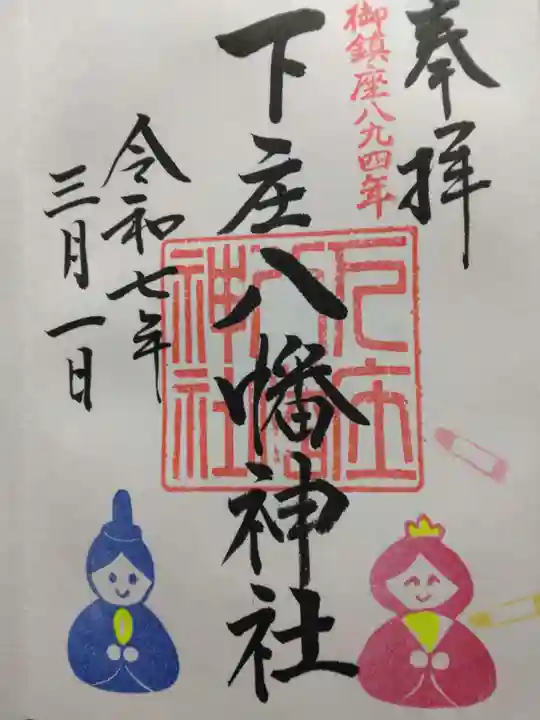 奉拝
御鎮座八九四年
下庄八幡神社
下庄八幡神社
令和七年
三月一日